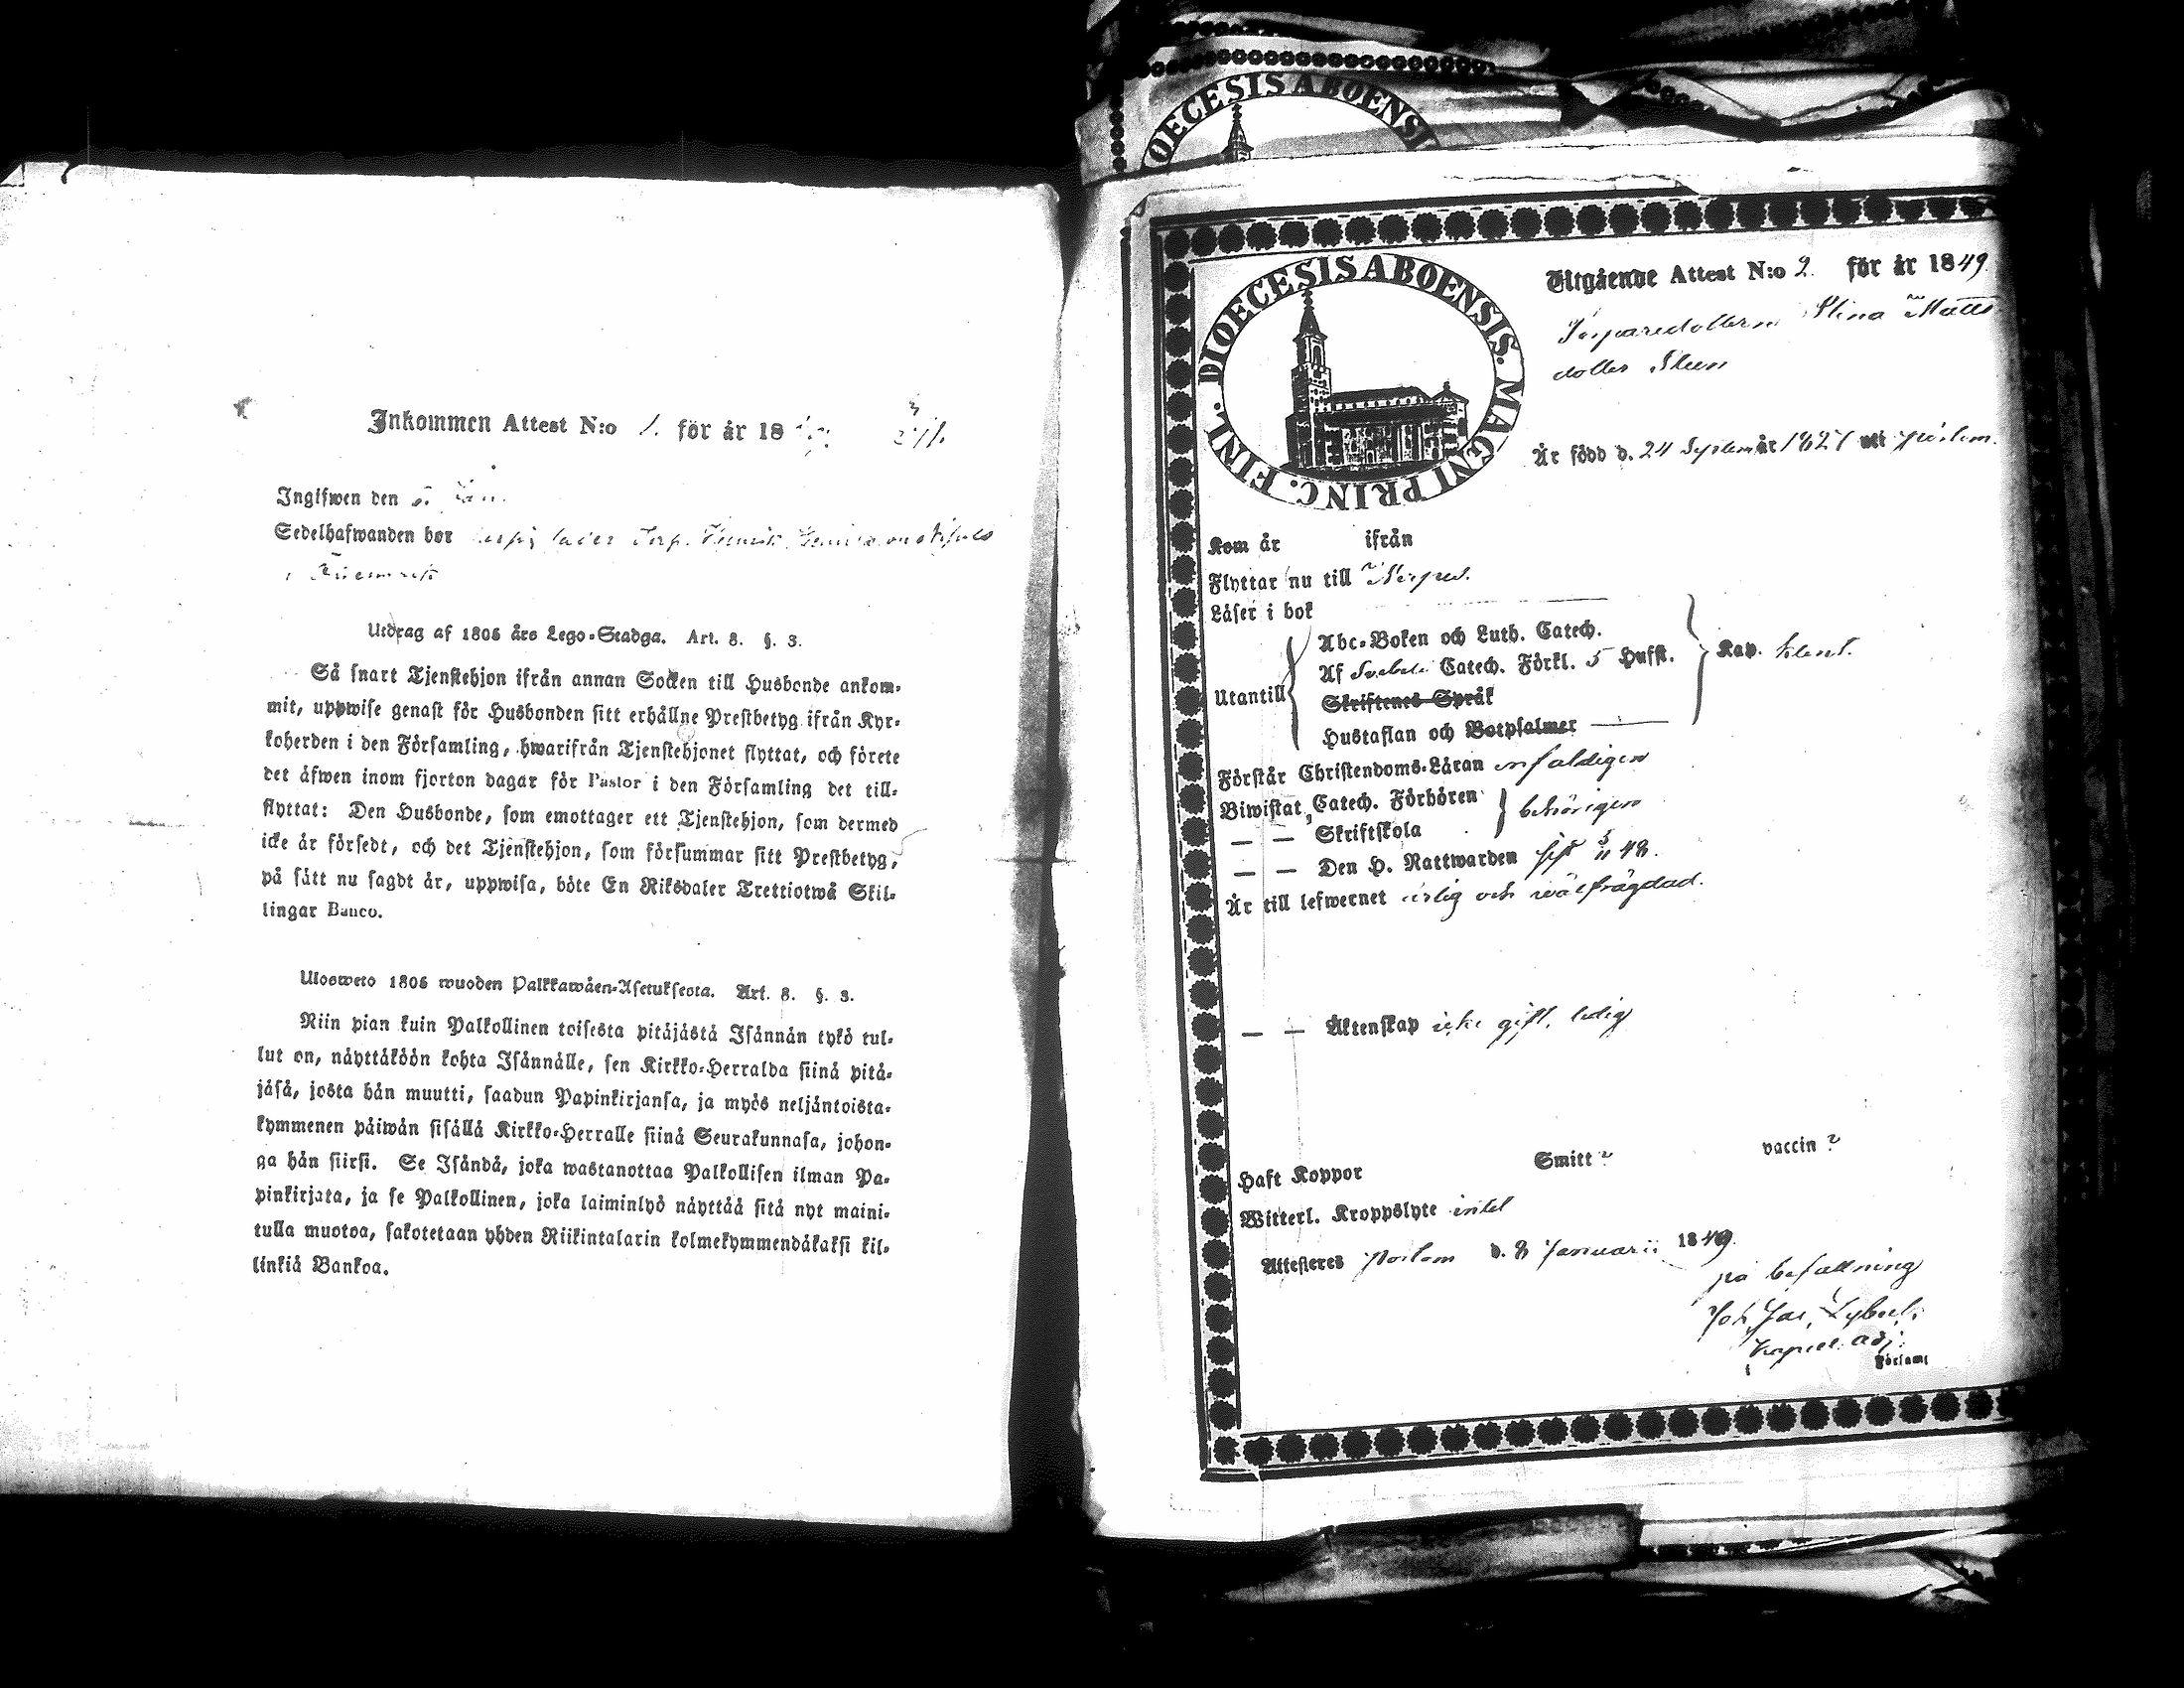 Inkommen Attest N:o 1. för år 18
Ingifwen den Jan.
Sedelhafwanden bor
Utdrag af 1805 års Lego-Stadga. Art. 8. §. 3.
Så snart Tjenstehjon ifrån annan Socken till Husbonde ankom-
mit, uppwise genast för Husbonden sitt erhållne Prestbetyg ifrån Kyr-
koherden i den Församling, hwarifrån Tjenstehjonet flyttat, och förete
det äfwen inom fjorton dagar för Pastor i den Församling det till-
flyttat: Den Husbonde, som emottager ett Tjenstehjon, som dermed
icke är försedt, och det Tjenstehjon, som försummar sitt Prestbetyg,
på sätt nu sagdt är, uppwisa, böte En Riksdaler Trettiotwå Skil-
lingar Banco.
Ulosweto 1805 wuoden Palkkawäen-Asetuksesta. Art. 8. §. 3.
Niin pian kuin Palkollinen toisesta pitäjästä Isännän tykö tul-
lut on, näyttäköön kohta Isännälle, sen Kirkko-Herralda siinä pitä-
jäsä, josta hän muutti, saadun Papinkirjansa, ja myös neljäntoista-
kymmenen päiwän sisällä Kirkko-Herralle siinä Seurakunnasa, johon-
ga hän siirsi. Se Isändä, joka wastanottaa Palkollisen ilman Pa-
pinkirjata, ja se Palkollinen, joka laiminlyö näyttää sitä nyt maini-
tulla muotoa, sakotetaan yhden Riikintalarin kolmekymmendäkaksi kil-
linkiä Bankoa.
DIOECESIS ABOENSI
DIOECESIS ABOENSIS. MAGNI PRINC. FINL.
Utgående Attest N:o 2. för år 1849
Stina Matts
dotter
Är född d. 24 Septem år 1827 uti
Kom år ifrån
Flyttar nu till
Läser i bok
Utantill
Abc-Boken och Luth. Catech.
Af Svebeli Catech. Förkl. 5 Hufst.
Skriftenes Språk
Hustaflan och Botpsalmer
Kap. klent.
Förstår Christendoms-Läran enfaldigen
Biwistat Catech. Förhören
— — Skriftskola
behörigen
— — Den H. Nattwarden sist 5/11 48.
Är till lefwernet ärlig och wälfrägdad.
— — Äktenskap icke gift, ledig
Haft Koppor Smitt? vaccin?
Witterl. Kroppslyte intet
Attesteres d. 8 Januarii 1849
på befallning
Joh. Jac.
adj.
Församl